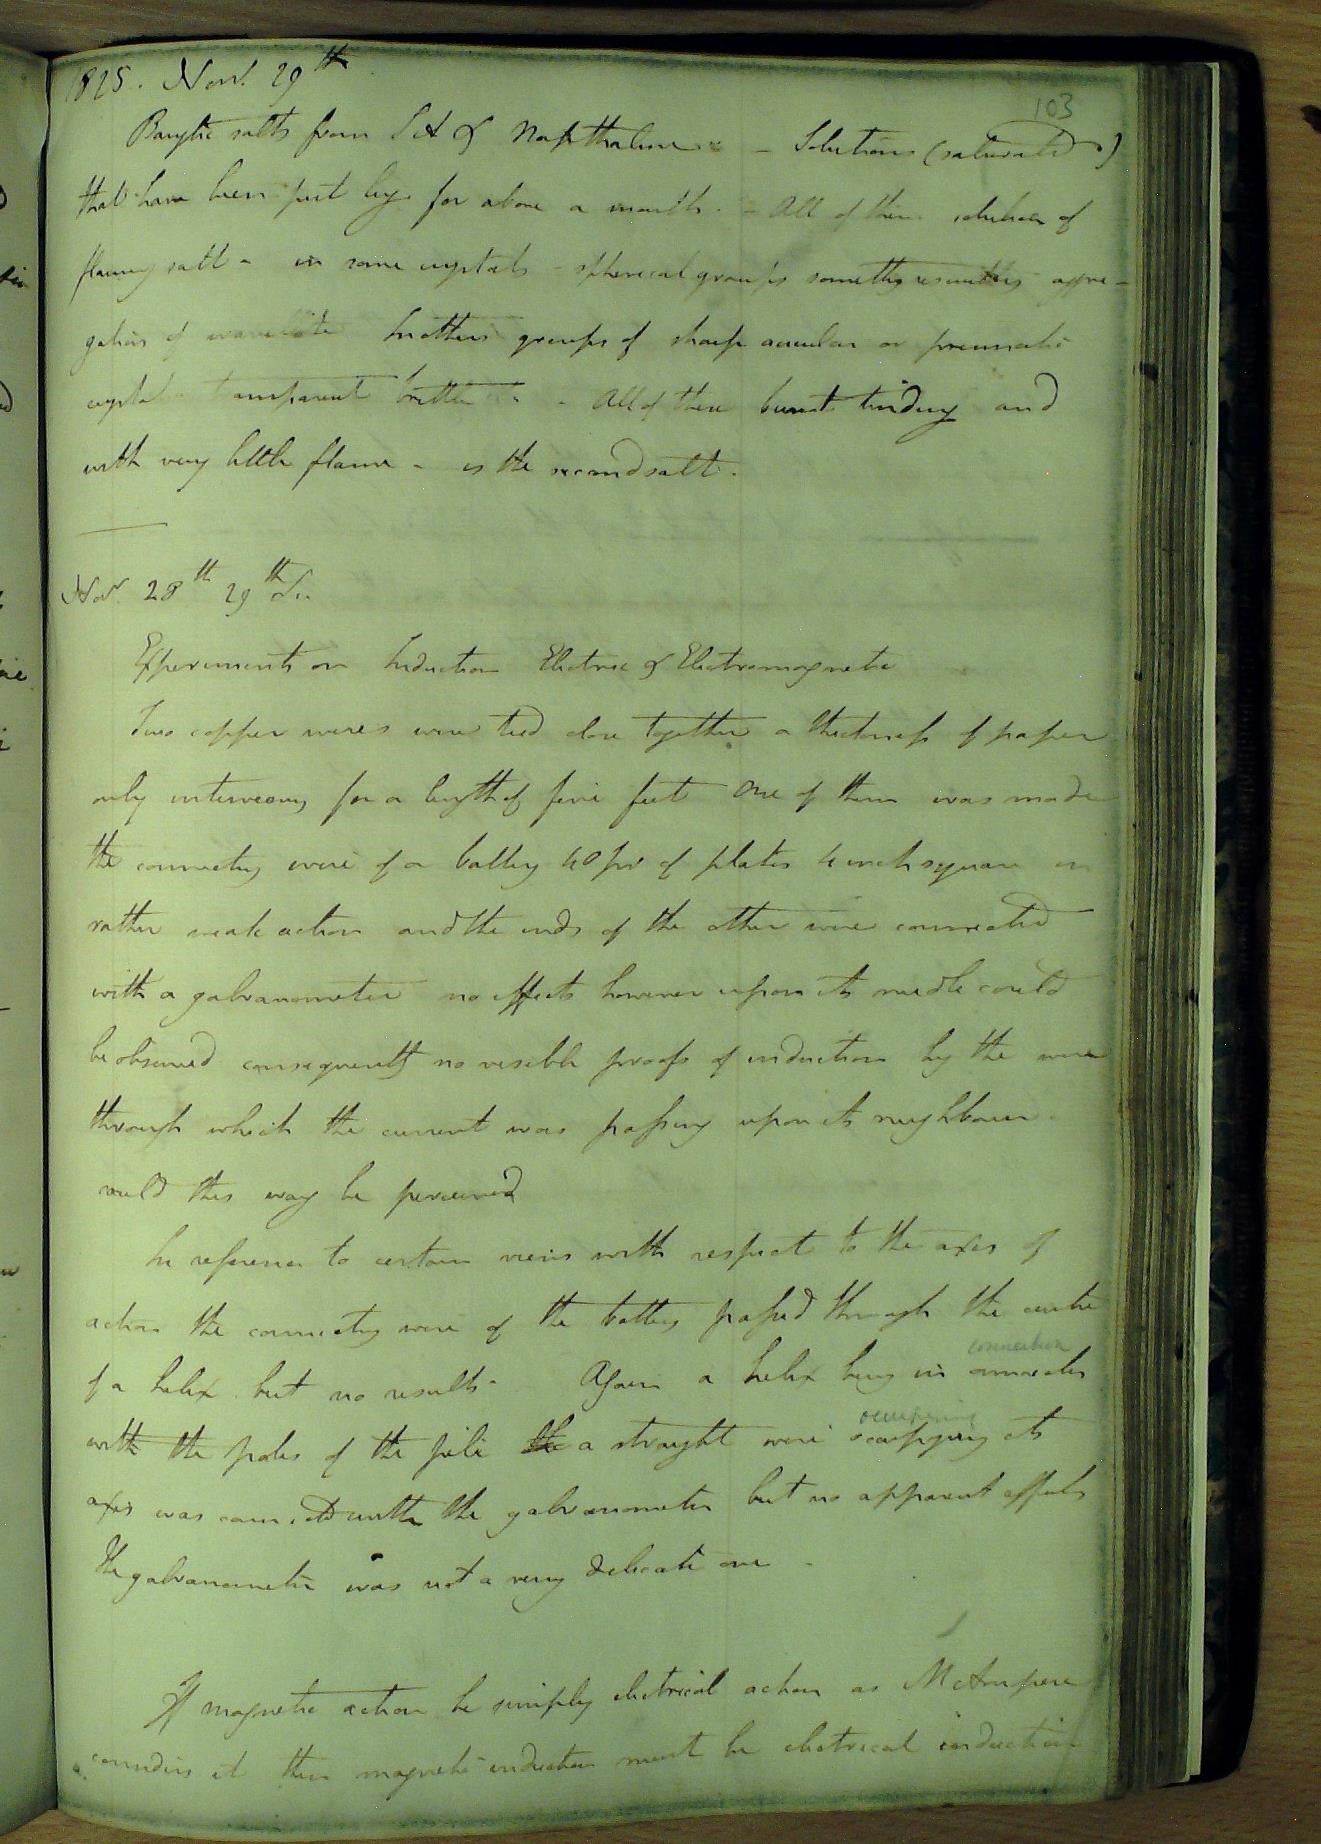 1825. Novr. 29th
103
Barytic salts from S A & Napthaline - Solutions (saturated)
that have been put by for above a month. - All of them solution of
flaming salt - in some crystals - spherical groups somethg resembling aggre-
gations of wavellite In others groups of sharp acicular or prismatic
crystal transparent brittle - All of these burnt tindery and
with very little flame - is the second salt.
Novr. 28th 29th &c.
Experiments on Induction Electric & Electromagnetic
Two copper wires were tied close together a thickness of paper
only intervening for a length of five feet One of them was made
the connecting wire of a battery 40 pr of plates 4 inch square in
rather weak action and the ends of the other were connected
with a galvanometer no effects however upon its needle could
be observed consequently no visible proofs of induction by the wire
through which the current was passing upon its neighbour
could this way be perceived
In reference to certain views with respect to the axes of
action the connecting wire of the battery passed through the centre
connection
of a helix but no results - Again a helix being in connection
occupying
with the poles of the pile the a straight wire occupying its
axis was connected with the galvanometer but no apparent effects
The galvanometer was not a very delicate one -
If magnetic action be simply electrical action as M Ampere
considers it then magnetic induction must be electrical induction